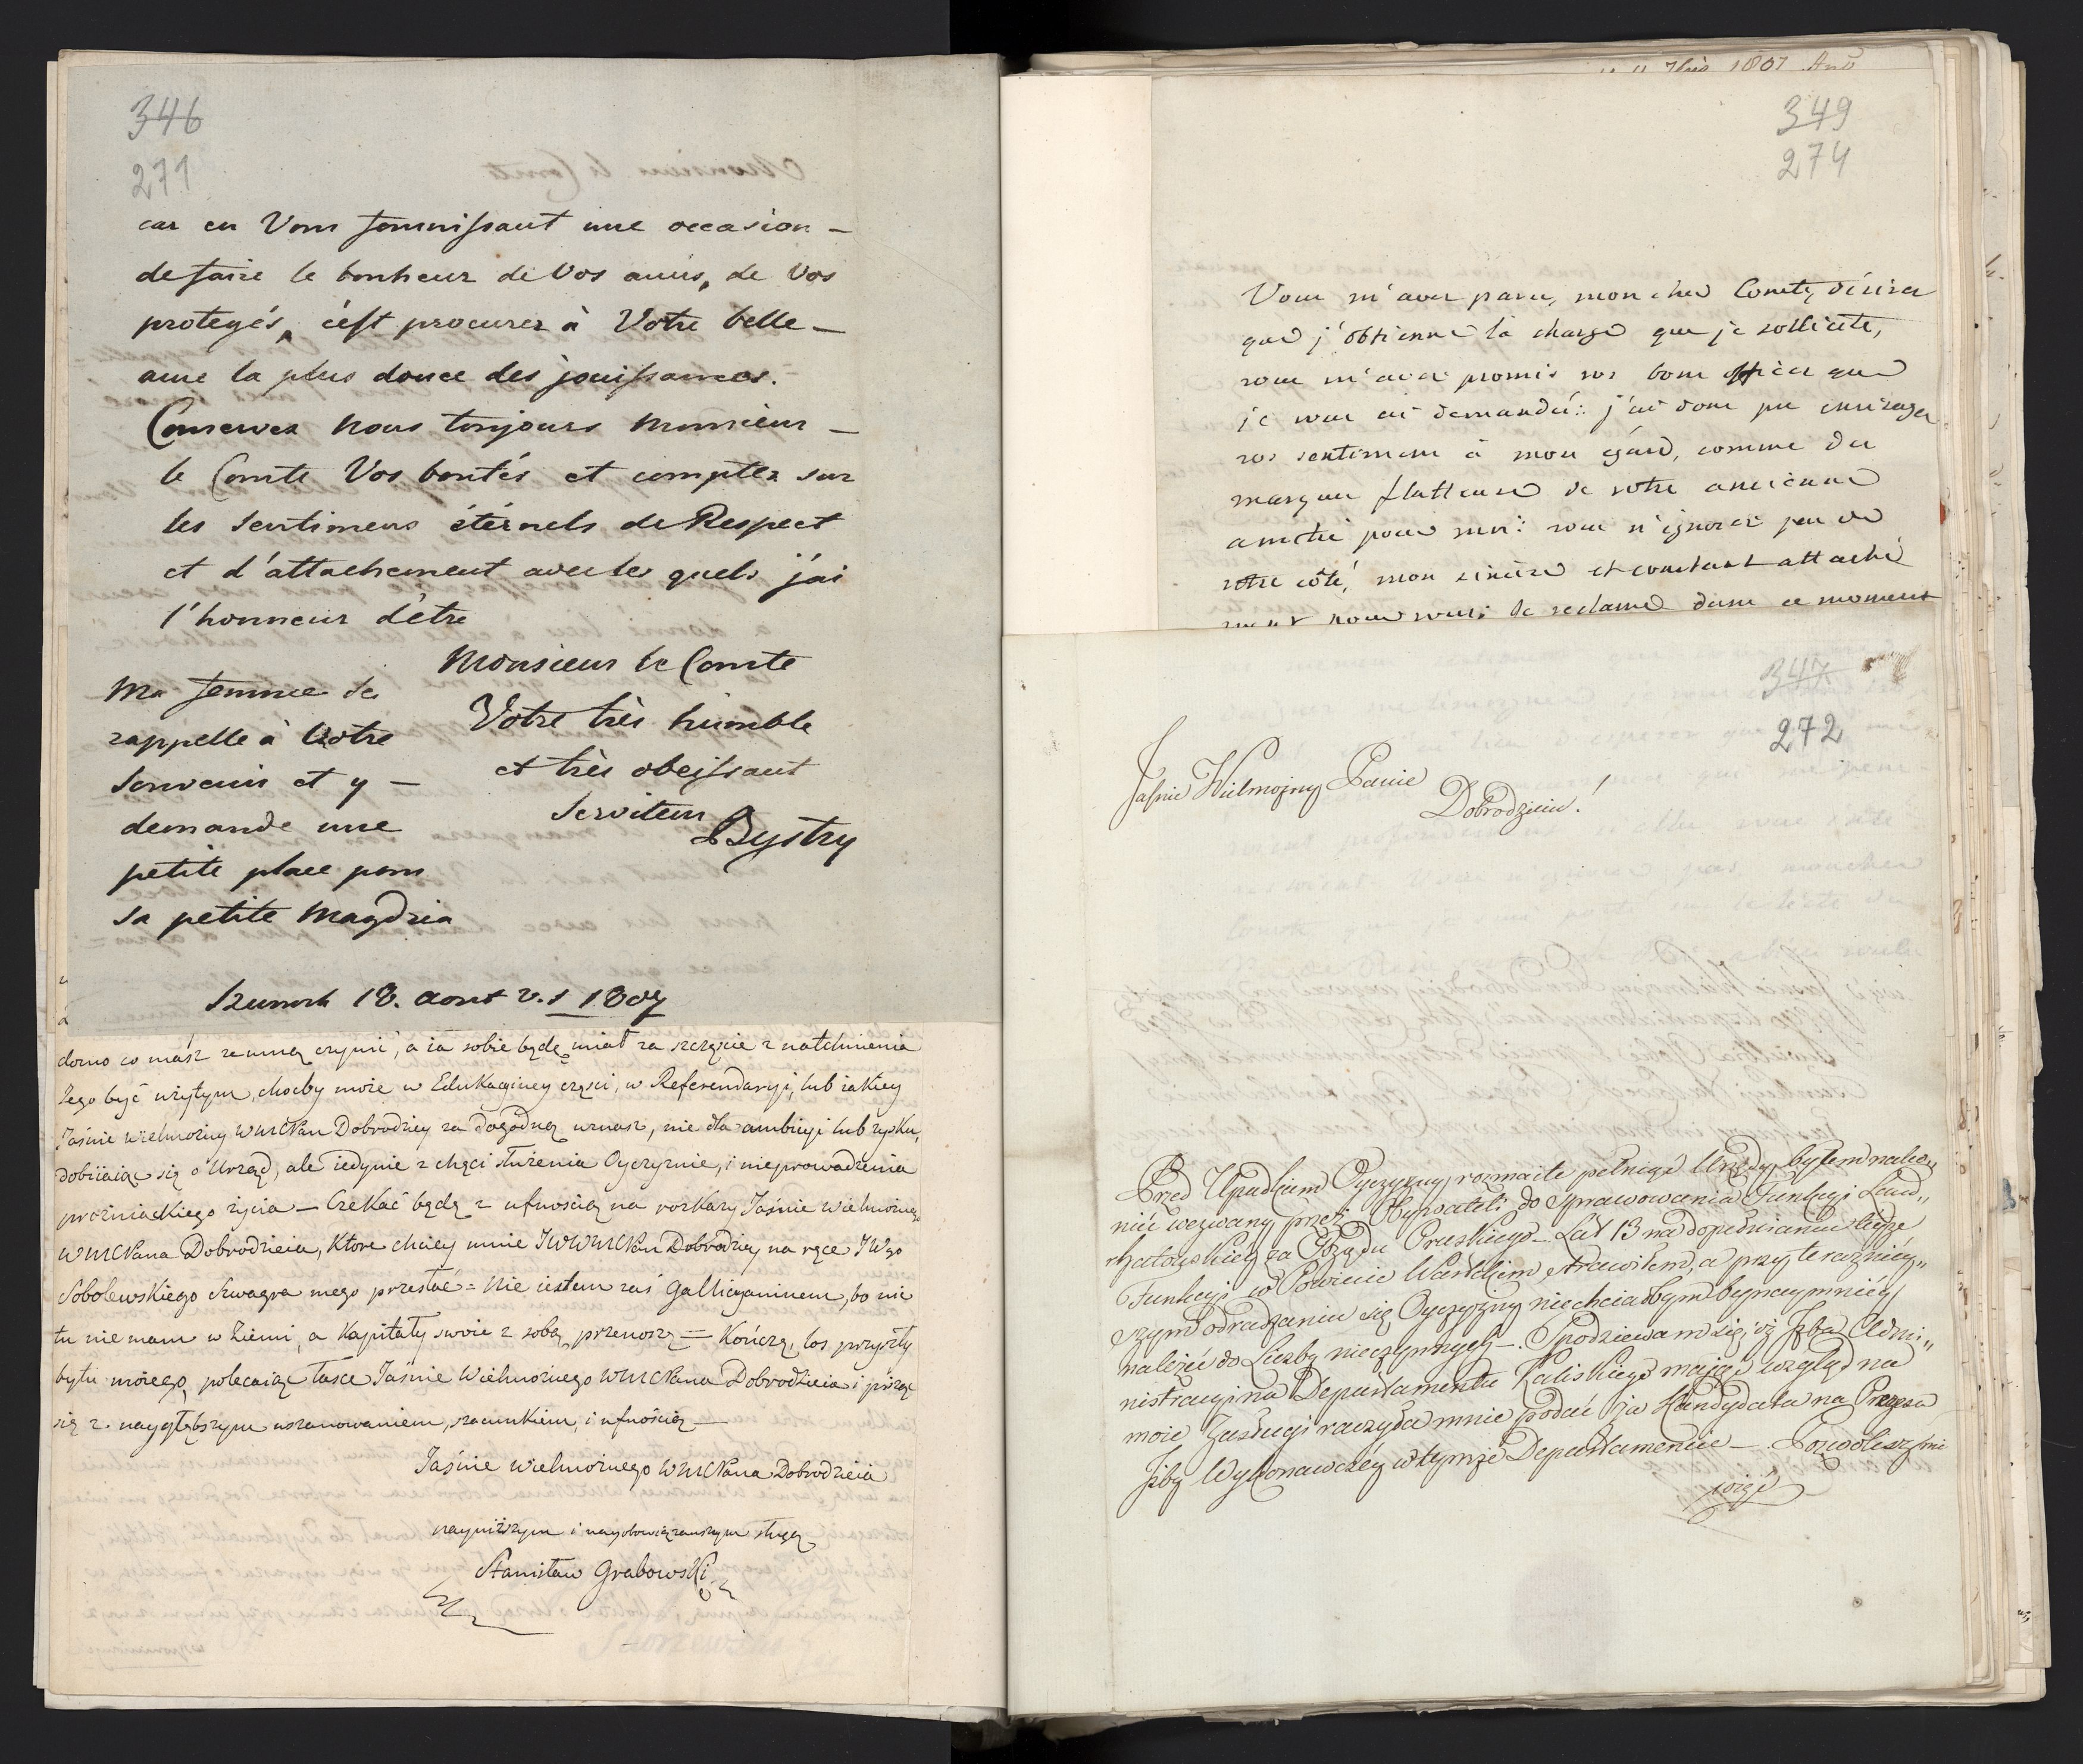 346
271
car en Vous fournissant une occasion –
de faire le bonheur de Vos amis, de Vos
protegés, c'est procurer à Votre belle –
ame la plus douce des jouissances.
Conservez nous toujours Monsieur –
le Comte Vos bontés et comptez sur
les sentimens éternels de Respect
et d'attachement avec les quels j'ai
l'honneur d'être
Monsieur le Comte
Votre très humble
et très obeissant
Serviteur
Bystry
Ma femme se
rappelle à Votre
Souvenir et y –
demande une
petite place pour
sa petite Magdzia
18. aout v. s 1807
domo co masz zemną czynić, a ia sobie będę miał za szczęście z natchnienia
Jego być użytym, choćby może w Edukacyiney części, w Referendaryi, lub iakiey
Jaśnie Wielmożny WMCPan Dobrodziey za dogodną uznasz, nie dla ambicyi lub zysku,
dobiiaiąc się o Urząd, ale iedynie z chęci służenia Oyczyznie, i nieprowadzenia
prożniackiego życia – Czekać będę z ufnością na rozkazy Jaśnie Wielmożnego
WMCPana Dobrodzieia, ktore chciey mnie JWWMCPan Dobrodziey na ręce JWgo
Sobolewskiego Szwagra mego przesłać = Nie iestem zaś Gallicyaninem, bo nic
tu nie mam w Ziemi, a Kapitały swoie z sobą przenoszę = Kończę, los przyszły
bytu moiego, polecaiąc łasce Jaśnie Wielmożnego WMCPana Dobrodzieia i piszę
się z naygłębszym uszanowaniem, szacunkiem, i ufnością –
Jaśnie Wielmożnego WMCPana Dobrodzieia
nayniższym i nayobowiązanszym sługą
Stanisław Grabowski
1807
349
274
Vous m'avez paru, mon cher Comte, désirer
que j'obtienne la charge que je sollicite,
vous m'avez promis vos bons offices que
je vous ai demandés: j'ai donc pu envisager
vos sentimens à mon égard, comme des
marques flatteuses de votre ancienne
amitié pour moi: vous n'ignorez pas de
votre côté, mon sincère et constant attaché
ment pour vous; Je reclame dans ce moment
347
272
Jaśnie Wielmożny Panie
Dobrodzieiu!
Przed Upadkiem Oyczyzny rozmaite pełniąc Urzędy, byłem nako„
niec wezwany przez Obywateli do Sprawowania Funkcyi Land„
rhatowskiey za Rządu Pruskiego. Lat 13 na dopełnianiu teyże
Funkcyi w Powiecie Wartskim strawiłem, a przy teraznieyy„
szym odradzaniu się Oyczyzny niechciałbym bynaymniéy
należéć do Liczby nieczynnych –. Spodziewam się, iż Izba Admi„
nistracyina Departamentu Kaliskiego maiąc wzgląd na
moie Zasługi raczyła mnie podać za Kandydata na Prezesa
Izby Wykonawczéy w tymże Departamencie –. Pozwolisz mi
więc